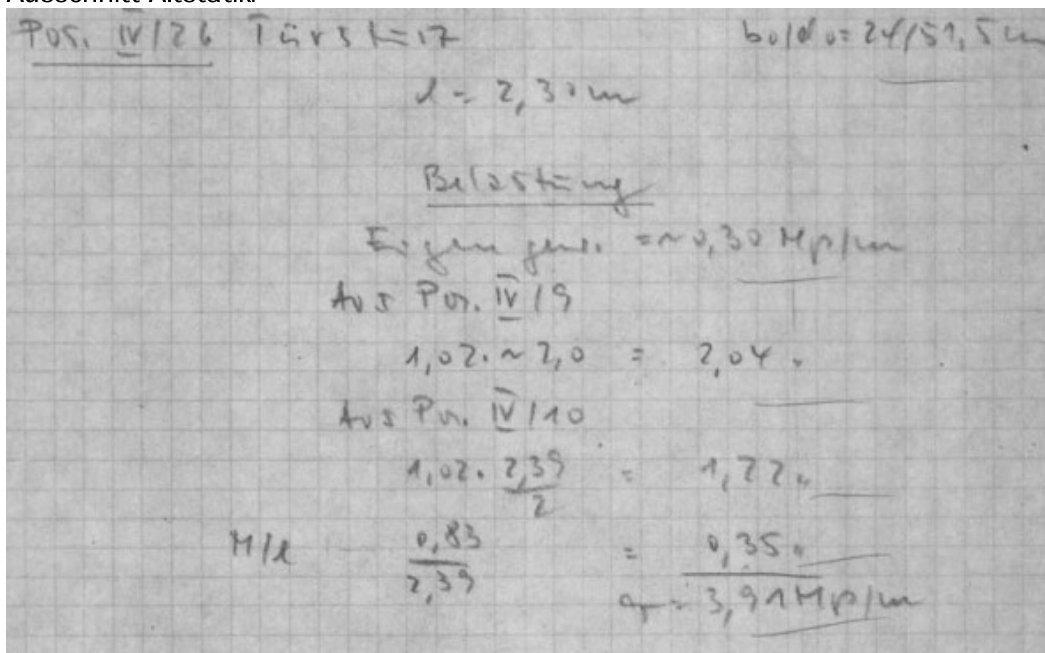 Ausschnitt Altstatik:
Pos. IV/26 Türsturz b0/d0 = 24/51,5 cm
l = 2,30 m
Belastung
Eigengew. =~ 0,30 Mp/m
Aus Pos. IV/9
1,02 · ~ 2,0 = 2,04 "
Aus Pos. IV/10
1,02 · 2,39/2 = 1,22 "
M/l 0,83/2,39 = 0,35 "
q = 3,91 Mp/m